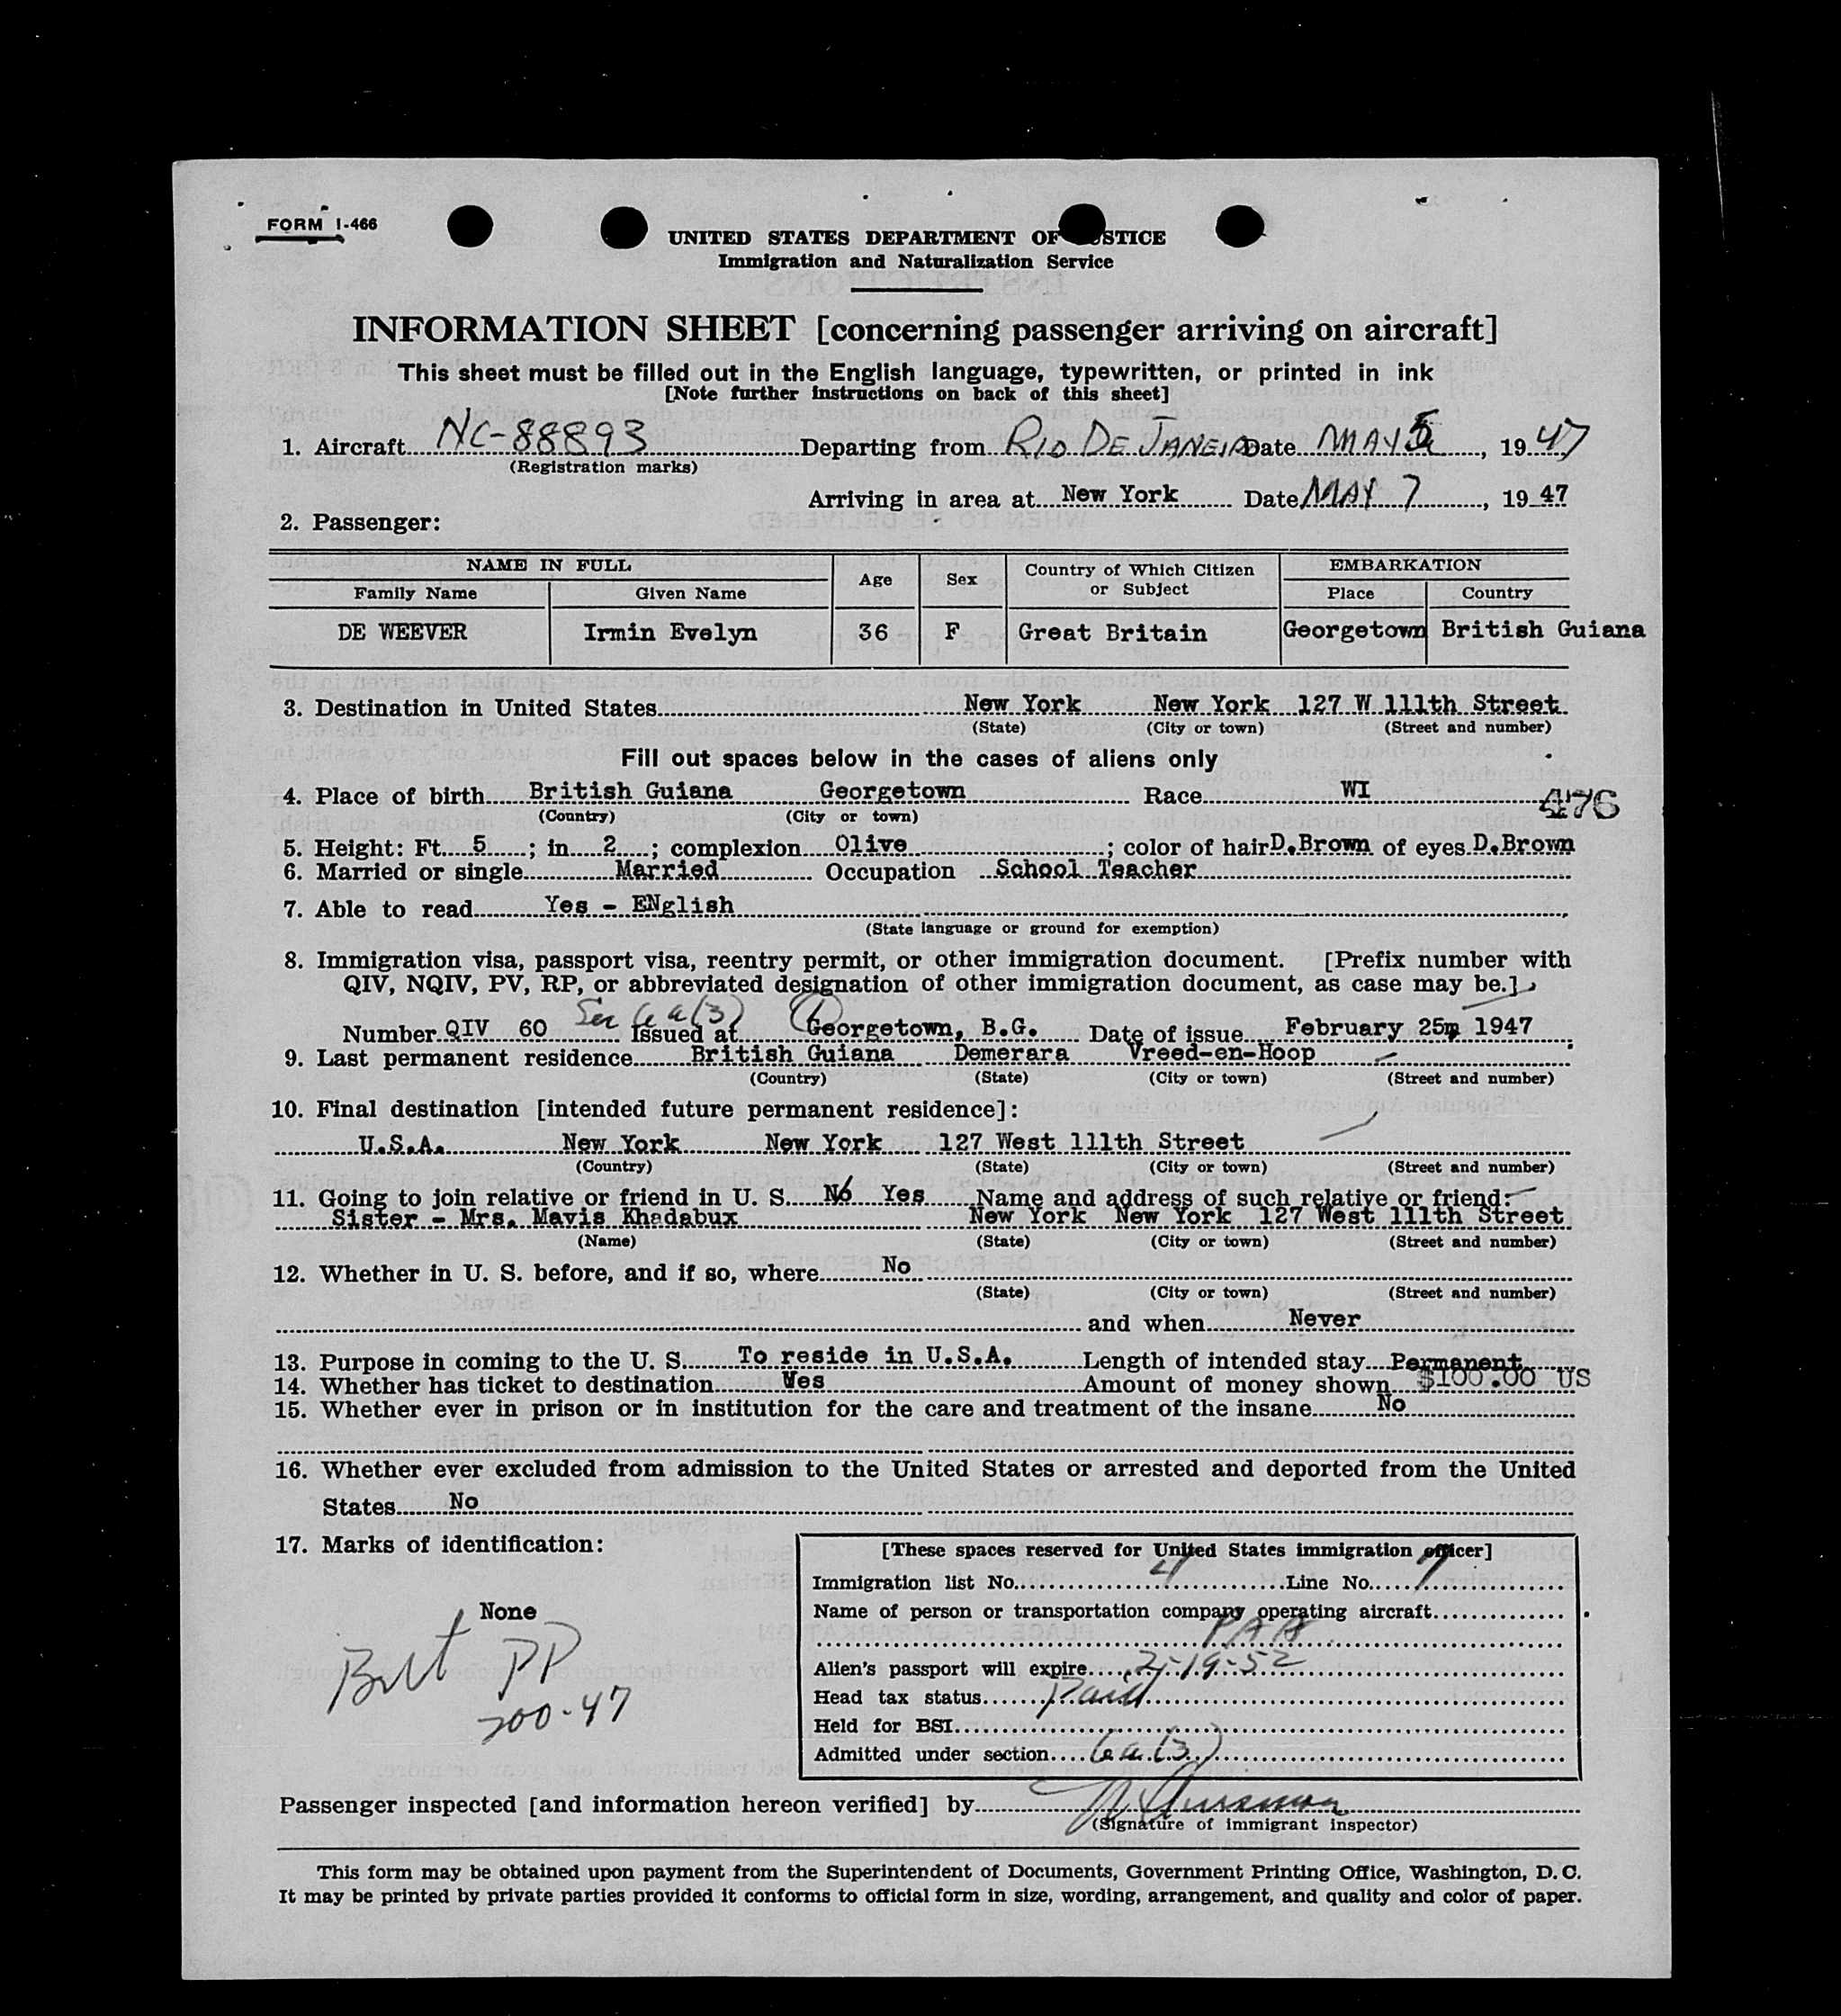 FORM I-466
UNITED STATES DEPARTMENT OF STICE
Immigration and Naturalization Service
INFORMATION SHEET [concerning passenger arriving on aircraft]
This sheet must be filled out in the English language, typewritten, or printed in ink
[Note further instructions on back of this sheet]
1. Aircraft NC-88893 Departing from RIO DE JANEIR Date MAY 5, 1947
(Registration marks)
Arriving in area at New York Date MAY 7, 1947
2. Passenger:
NAME IN FULL Age Sex Country of Which Citizen or Subject EMBARKATION
Family Name Given Name Place Country
DE WEEVER Irmin Evelyn 36 F Great Britain Georgetown British Guiana
3. Destination in United States New York New York 127 W 111th Street
(State) (City or town) (Street and number)
Fill out spaces below in the cases of aliens only
4. Place of birth British Guiana Georgetown Race WI 476
(Country) (City or town)
5. Height: Ft. 5; in. 2; complexion Olive; color of hair D.Brown of eyes D.Brown
6. Married or single Married Occupation School Teacher
7. Able to read Yes - ENglish
(State language or ground for exemption)
8. Immigration visa, passport visa, reentry permit, or other immigration document. [Prefix number with
QIV, NQIV, PV, RP, or abbreviated designation of other immigration document, as case may be.]
Sec 6a(3) (1)
Number QIV 60 Issued at Georgetown, B.G. Date of issue February 25, 1947
9. Last permanent residence British Guiana Demerara Vreed-en-Hoop
(Country) (State) (City or town) (Street and number)
10. Final destination [intended future permanent residence]:
U.S.A. New York New York 127 West 111th Street
(Country) (State) (City or town) (Street and number)
11. Going to join relative or friend in U. S. No Yes Name and address of such relative or friend:
Sister - Mrs. Mavis Khadabux New York New York 127 West 111th Street
(Name) (State) (City or town) (Street and number)
12. Whether in U. S. before, and if so, where No
(State) (City or town) (Street and number)
and when Never
13. Purpose in coming to the U. S. To reside in U.S.A. Length of intended stay Permanent
14. Whether has ticket to destination Yes Amount of money shown $100.00 US
15. Whether ever in prison or in institution for the care and treatment of the insane No
16. Whether ever excluded from admission to the United States or arrested and deported from the United
States No
17. Marks of identification:
None
Brit PP
200-47
[These spaces reserved for United States immigration officer]
Immigration list No. 4 Line No. 9
Name of person or transportation company operating aircraft
PAA
Alien's passport will expire 2-19-52
Head tax status paid
Held for BSI
Admitted under section 6a(3)
Passenger inspected [and information hereon verified] by
(Signature of immigrant inspector)
This form may be obtained upon payment from the Superintendent of Documents, Government Printing Office, Washington, D.C.
It may be printed by private parties provided it conforms to official form in size, wording, arrangement, and quality and color of paper.